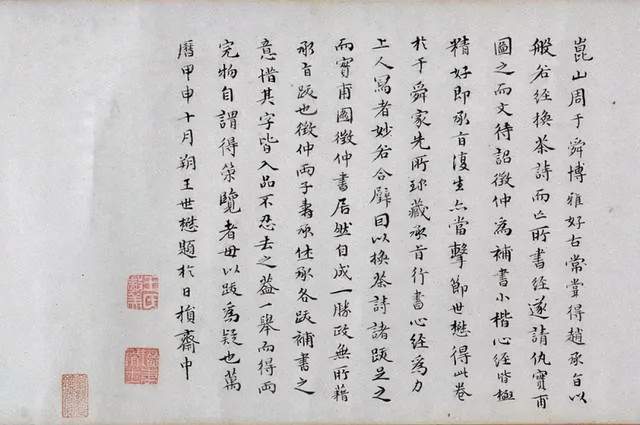 崑山周于舜博雅好古常得趙承旨以
般若經換茶詩而亡所書經遂請仇實甫
圖之而文待詔徵仲為補書小楷心經皆極
精好即承旨復生亦當擊節世懋得此卷
於于舜家先所珍藏承旨行書心經為力
上人寫者妙若合璧因以換茶詩諸跋足之
而實甫圖徵仲書居然自成一勝政無所藉
承旨跋也徵仲兩子壽承休承各跋補書之
意惜其字皆入品不忍去之蓋一舉而得兩
完物自謂得策覽者毋以跋為疑也萬
曆甲申十月朔王世懋題於日損齋中